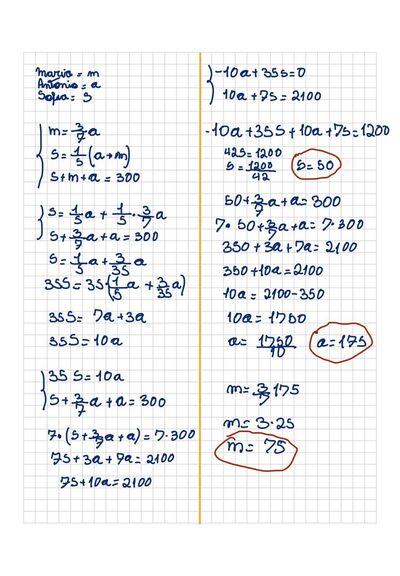 Maria = m
Antônio = a
Sofia = S
m = 3/7 a
S = 1/5 (a+m)
S + m + a = 300
S = 1/5 a + 1/5 · 3/7 a
S + 3/7 a + a = 300
S = 1/5 a + 3/35 a
35S = 35·(1/5 a + 3/35 a)
35S = 7a + 3a
35S = 10a
35 S = 10a
S + 3/7 a + a = 300
7·(S + 3/7 a + a) = 7·300
7S + 3a + 7a = 2100
7S + 10a = 2100
-10a + 35S = 0
10a + 7S = 2100
-10a + 35S + 10a + 7S = 1200
42S = 1200
S = 1200/42
S = 50
50 + 3/7 a + a = 300
7· 50 + 3/7 a + a = 7·300
350 + 3a + 7a = 2100
350 + 10a = 2100
10a = 2100 - 350
10a = 1750
a = 1750/10
a = 175
m = 3/7 175
m = 3·25
m = 75